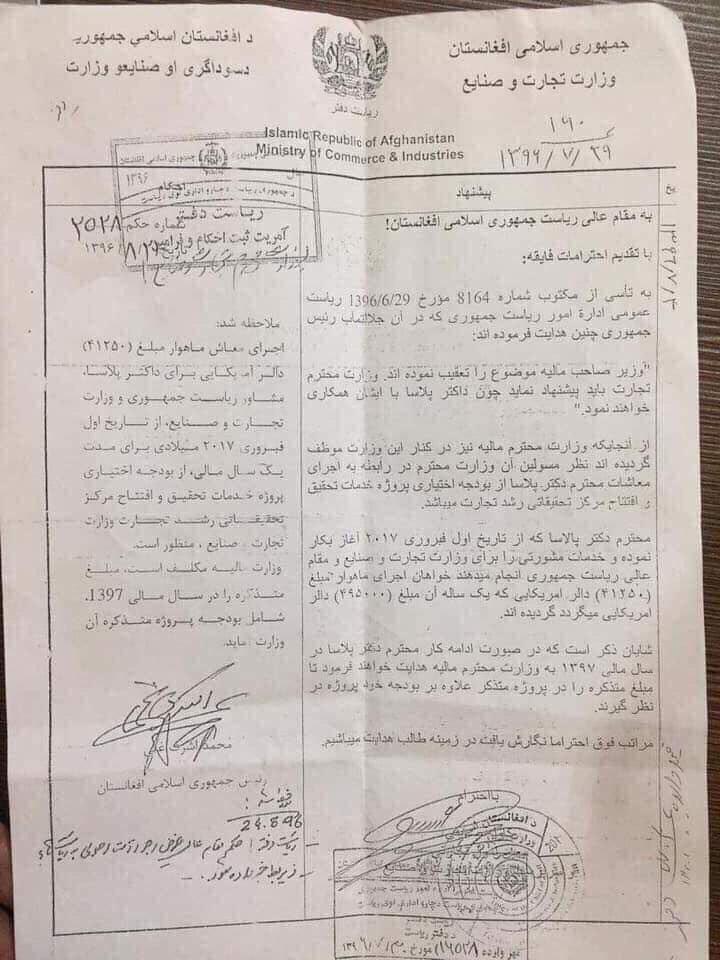 جمهوری اسلامی افغانستان
وزارت تجارت و صنایع
د افغانستان اسلامي جمهوریت
دسوداگری او صنایعو وزارت
ریاست دفتر
Islamic Republic of Afghanistan
Ministry of Commerce & Industries
۱۶۰
۱۳۹۶/۷/۲۹
پیشنهاد
به مقام عالی ریاست جمهوری اسلامی افغانستان!
با تقدیم احترامات فایقه:
به تأسی از مکتوب شماره 8164 مؤرخ 1396/6/29 ریاست
عمومی ادارۀ امور ریاست جمهوری که در آن جلالتماب رئیس
جمهوری چنین هدایت فرموده اند:
"وزیر صاحب مالیه موضوع را تعقیب نموده اند. وزارت محترم
تجارت باید پیشنهاد نماید چون داکتر پلاسا با ایشان همکاری
خواهند نمود."
از آنجایکه وزارت محترم مالیه نیز در کنار این وزارت موظف
گردیده اند نظر مسولین آن وزارت محترم در رابطه به اجرای
معاشات محترم دکتر پلاسا از بودجه اختیاری پروژه خدمات تحقیق
و افتتاح مرکز تحقیقاتی رشد تجارت میباشد.
محترم دکتر پالاسا که از تاریخ اول فبروری ۲۰۱۷ آغاز بکار
نموده و خدمات مشورتی را برای وزارت تجارت و صنایع و مقام
عالی ریاست جمهوری انجام میدهند خواهان اجرای ماهوار مبلغ
(۴۱۲۵۰) دالر امریکایی که یک ساله آن مبلغ (۴۹۵۰۰۰) دالر
امریکایی میگردد گردیده اند.
شایان ذکر است که در صورت ادامه کار محترم دکتر پلاسا در
سال مالی ۱۳۹۷ به وزارت محترم مالیه هدایت خواهند فرمود تا
مبلغ متذکره را در پروژه متذکر علاوه بر بودجه خود پروژه در
نظر گیرند.
مراتب فوق احتراما نگارش یافت در زمینه طالب هدایت میباشیم.
با احترام
جمهوری اسلامی افغانستان
۱۳۹۶
احکام
ریاست دفتر
شماره حکم ۲۵۲۸
آمریت ثبت احکام و فرامین
ملاحظه شد:
اجرای معاش ماهوار مبلغ (۴۱۲۵۰)
دالر امریکایی برای داکتر پلاسا،
مشاور ریاست جمهوری و وزارت
تجارت و صنایع، از تاریخ اول
فبروری ۲۰۱۷ میلادی برای مدت
یک سال مالی، از بودجه اختیاری
پروژه خدمات تحقیق و افتتاح مرکز
تحقیقاتی رشد تجارت وزارت
تجارت و صنایع ، منظور است.
وزارت مالیه مکلف است، مبلغ
متذکره را در سال مالی 1397،
شامل بودجه پروژه متذکره آن
وزارت نماید.
محمد اشرف غنی
رئیس جمهوری اسلامی افغانستان
24.8.96